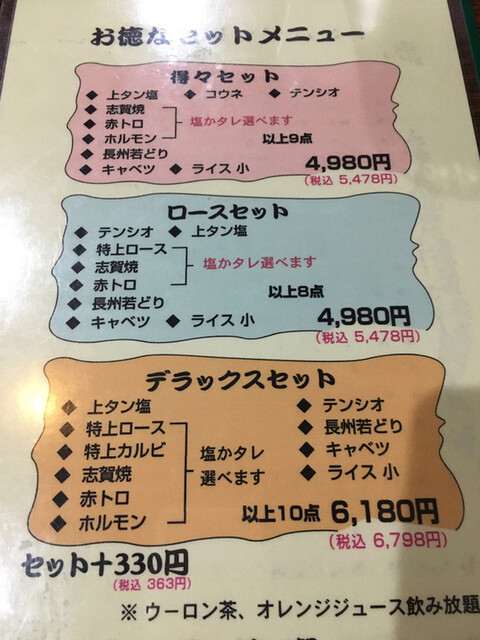 お徳なセットメニュー
得々セット
◆ 上タン塩 ◆ コウネ ◆ テンシオ
◆ 志賀焼
◆ 赤トロ 塩かタレ選べます
◆ ホルモン 以上9点
◆ 長州若どり
◆ キャベツ ◆ ライス 小 4,980円
(税込 5,478円)
ロースセット
◆ テンシオ ◆ 上タン塩
◆ 特上ロース
◆ 志賀焼 塩かタレ選べます
◆ 赤トロ 以上8点
◆ 長州若どり
◆ キャベツ ◆ ライス 小 4,980円
(税込 5,478円)
デラックスセット
◆ 上タン塩 ◆ テンシオ
◆ 特上ロース ◆ 長州若どり
◆ 特上カルビ 塩かタレ ◆ キャベツ
◆ 志賀焼 選べます ◆ ライス 小
◆ 赤トロ
◆ ホルモン 以上10点 6,180円
(税込 6,798円)
セット+330円
(税込 363円)
※ ウーロン茶、オレンジジュース飲み放題